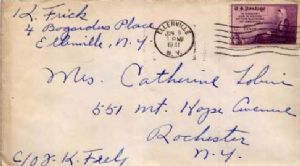 K. Frick
4 Bogardus Place
Ellenville, N.Y.
ELLENVILLE
N.Y.
U.S. Postage
Mrs. Catherine
551 Mt. Hope Avenue
Rochester
N.Y.
c/o K.